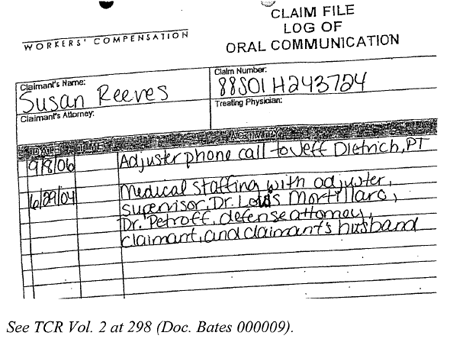 CLAIM FILE
LOG OF
ORAL COMMUNICATION
WORKERS' COMPENSATION
Claimant's Name:
Susan Reeves
Claim Number:
88S01H243724
Claimant's Attorney:
Treating Physician:
9/8/06 Adjuster phone call to Jeff Dietrich, PT
6/29/04 Medical staffing with adjuster,
supervisor, Dr. Lois Mortillaro,
Dr. Petroff, defense attorney,
claimant, and claimant's husband
See TCR Vol. 2 at 298 (Doc. Bates 000009).